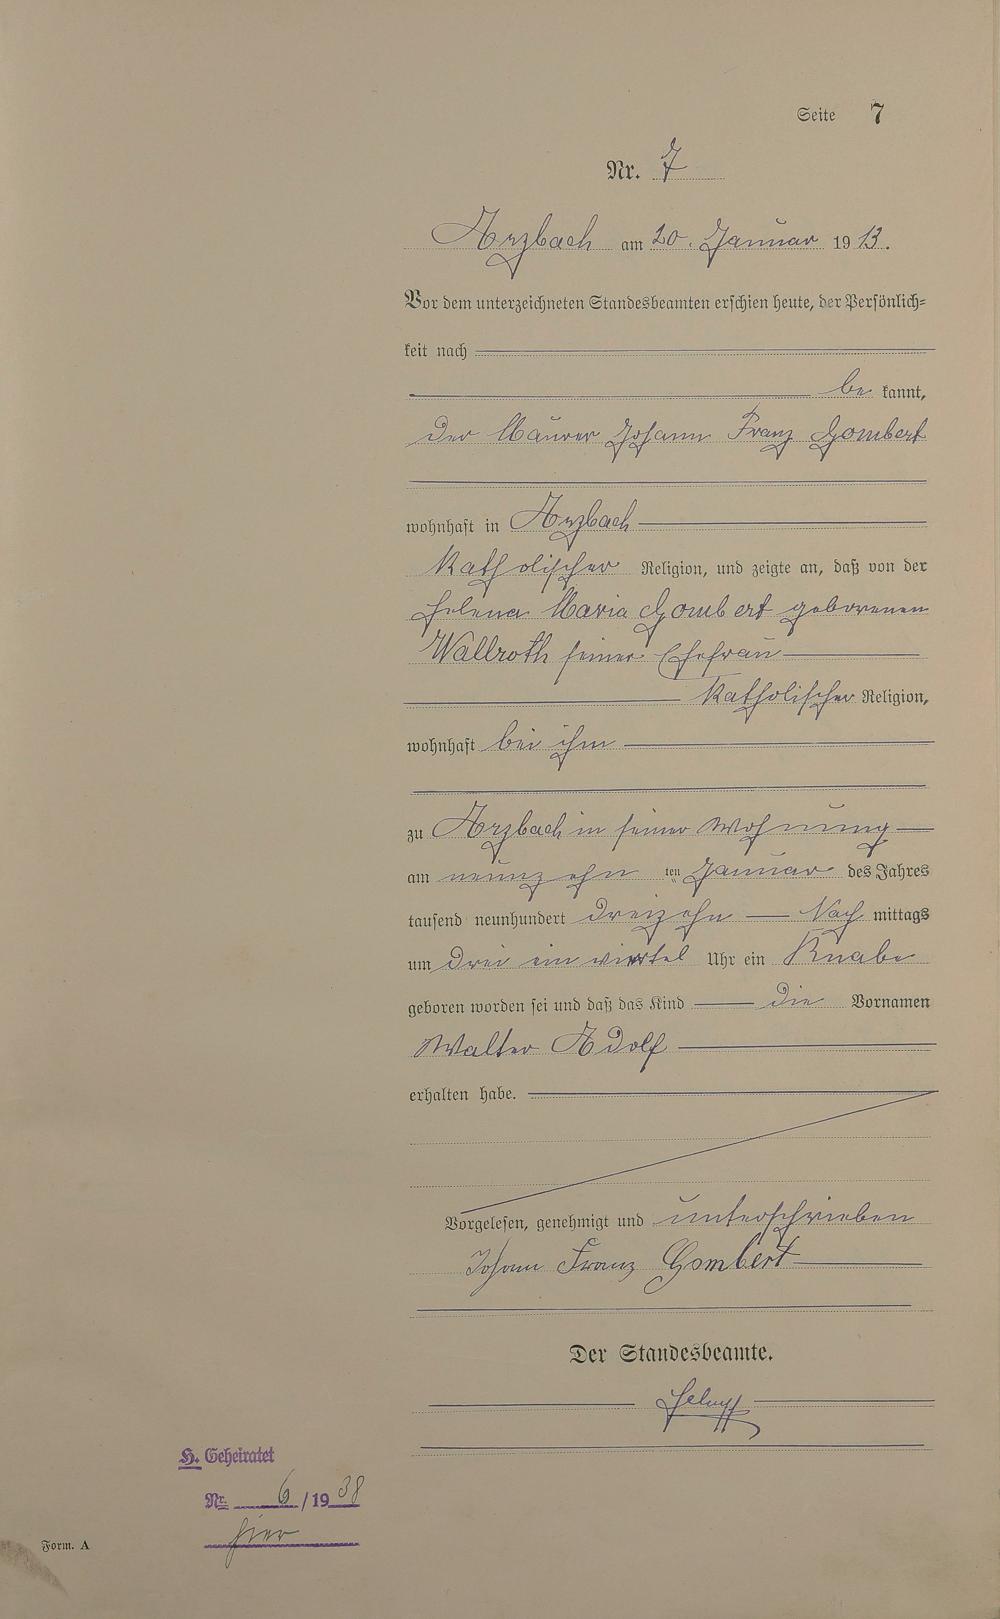 Seite 7
Nr. 7
Arzbach am 20. Januar 1913.
Vor dem unterzeichneten Standesbeamten erschien heute, der Persönlich-
keit nach
be kannt,
der Maurer Johann Franz Gombert
wohnhaft in Arzbach
katholischer Religion, und zeigte an, daß von der
Helena Maria Gombert geborenen
Wallroth seiner Ehefrau
katholischer Religion,
wohnhaft bei ihm
zu Arzbach in seiner Wohnung
am neunzehn ten Januar des Jahres
tausend neunhundert dreizehn Nach mittags
um drei ein viertel Uhr ein Knabe
geboren worden sei und daß das Kind die Vornamen
Walter Adolf
erhalten habe.
Vorgelesen, genehmigt und unterschrieben
Johann Franz Gombert
Der Standesbeamte.
H. Geheiratet
Nr. 6/1938
hier
Form. A